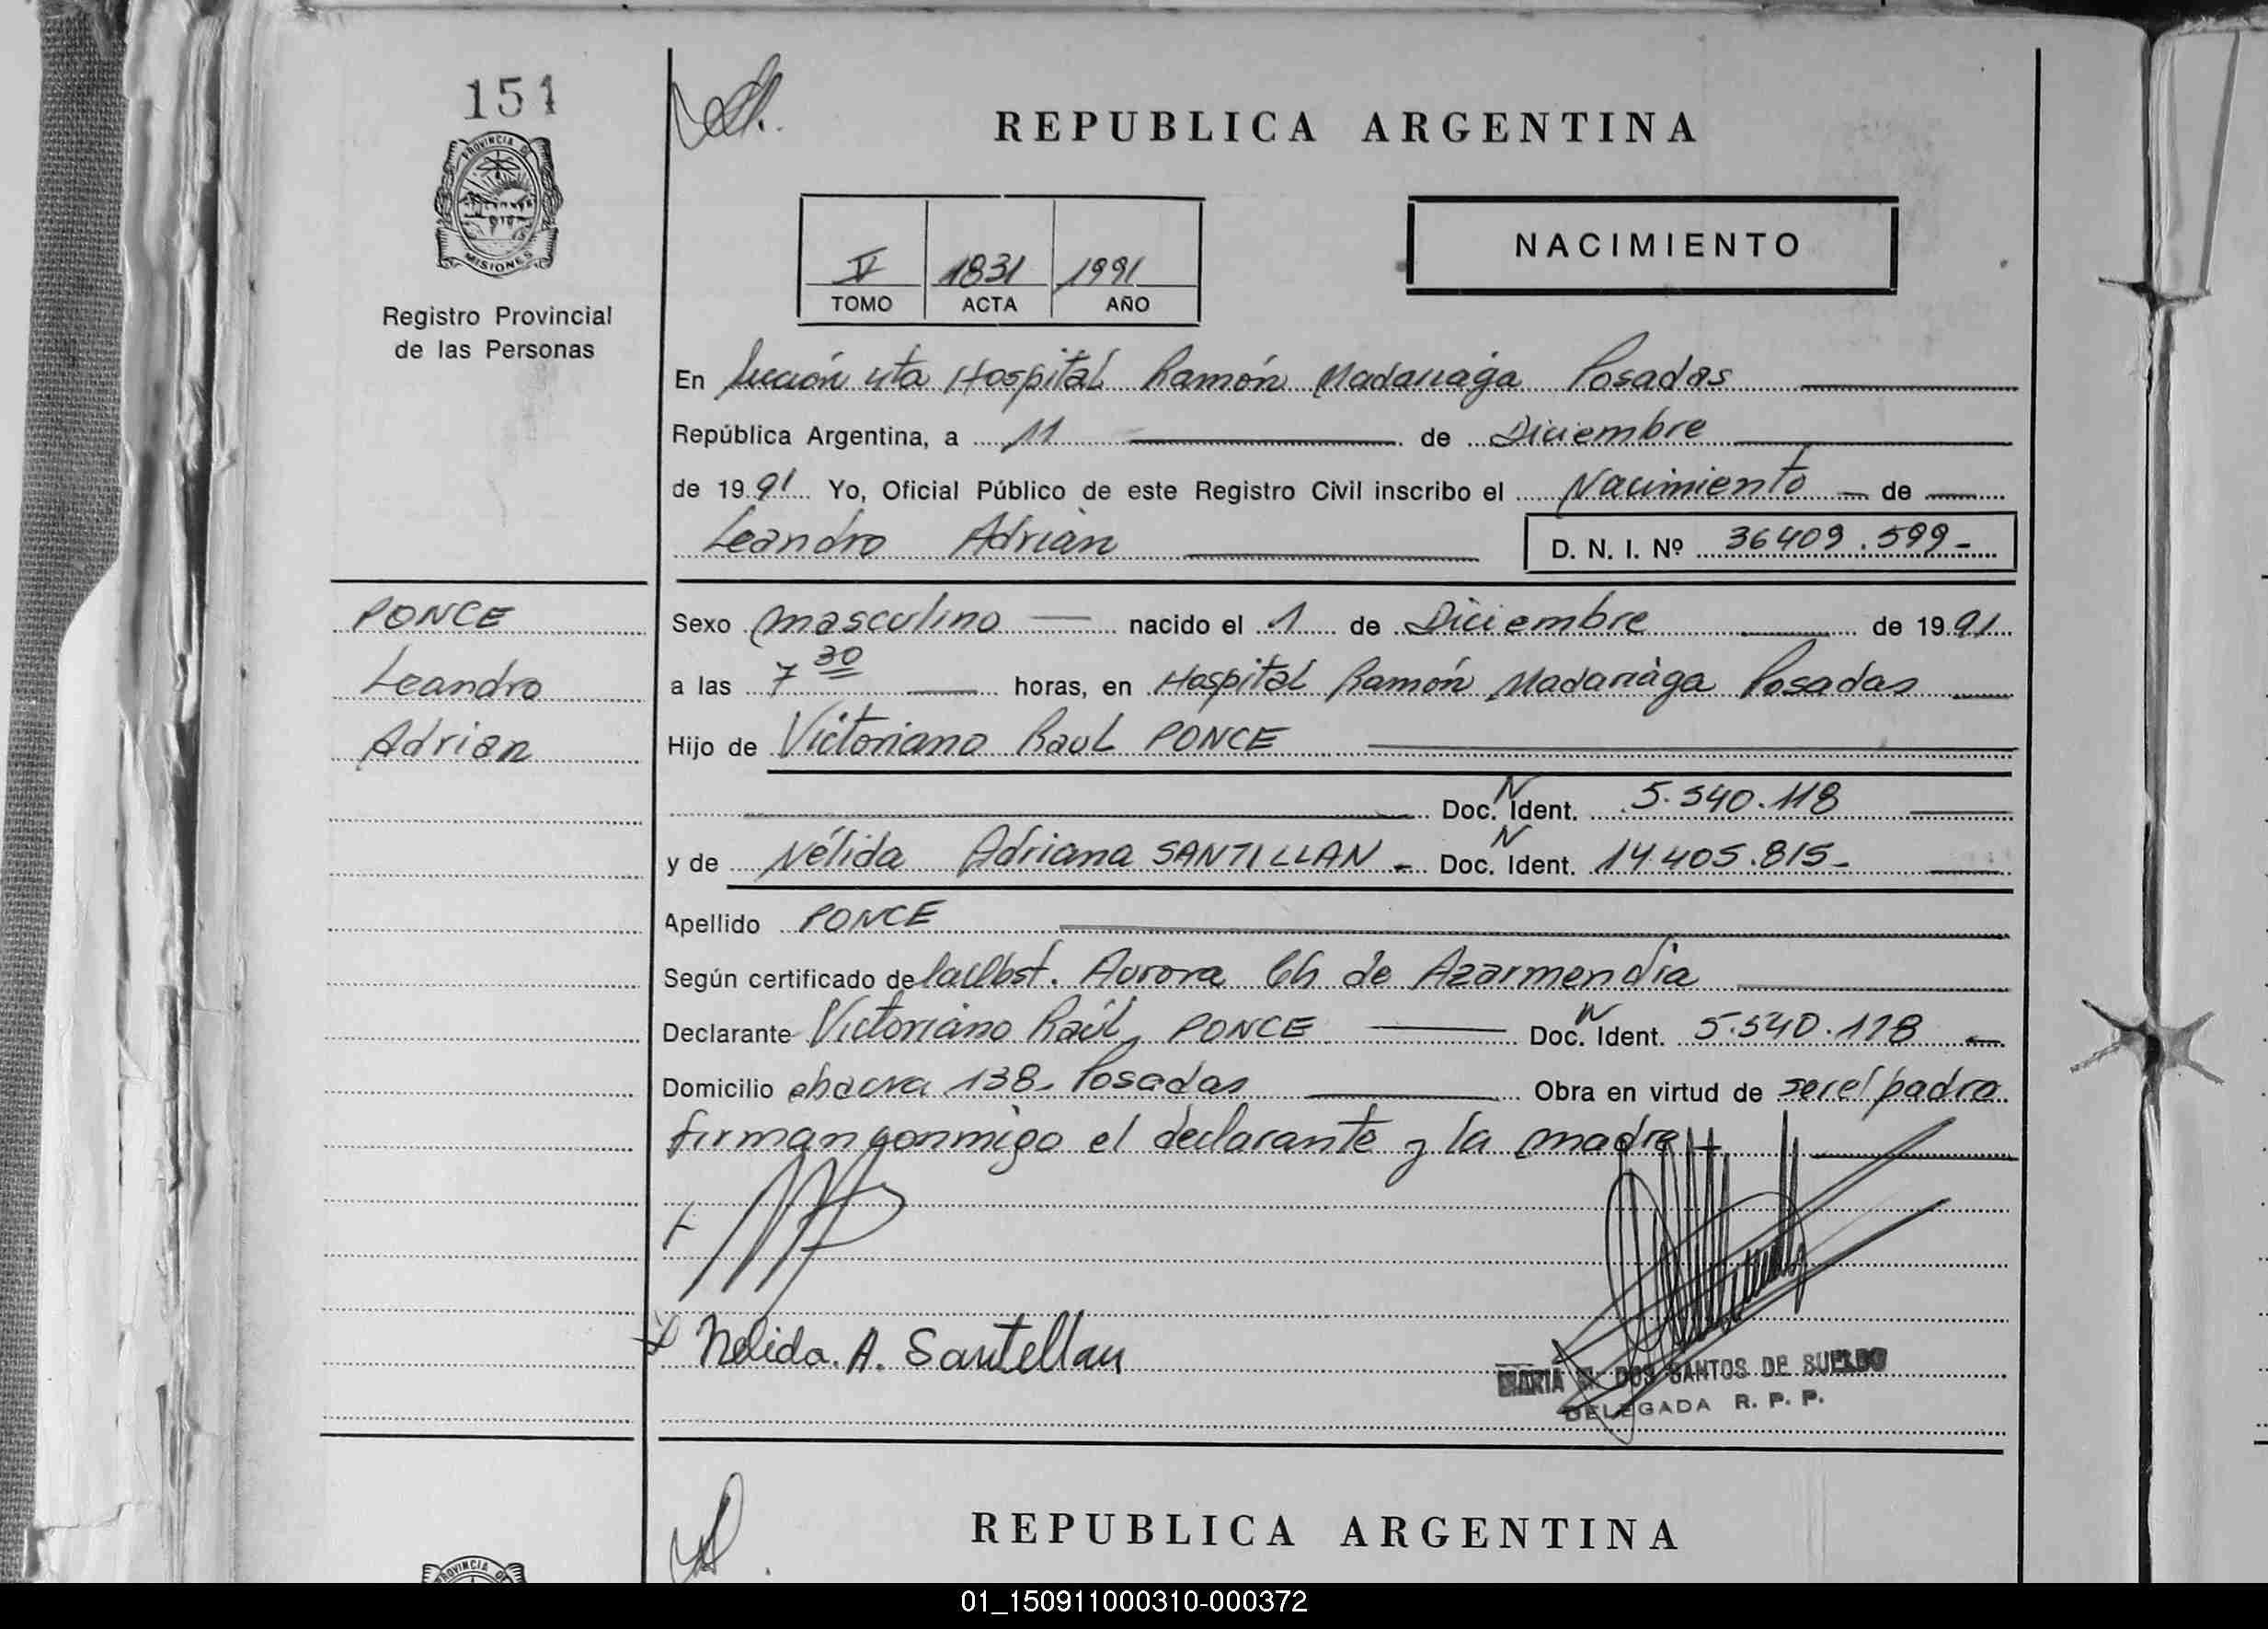 151
PROVINCIA DE
MISIONES
Registro Provincial
de las Personas
REPUBLICA ARGENTINA
V 1831 1991
TOMO ACTA AÑO
NACIMIENTO
En Sección 4ta Hospital Ramón Madariaga Posadas
República Argentina, a 11 de Diciembre
de 1991 Yo, Oficial Público de este Registro Civil inscribo el Nacimiento de
Leandro Adrián
D. N. I. Nº 36409.599-
PONCE
Leandro
Adrian
Sexo masculino nacido el 1 de Diciembre de 1991
a las 7 30 horas, en Hospital Ramón Madariaga Posadas
Hijo de Victoriano Raul PONCE
Doc. N Ident. 5.540.118
y de Nélida Adriana SANTILLAN - Doc. N Ident. 14.405.815-
Apellido PONCE
Según certificado de la Obst. Aurora Ch de Azarmendia
Declarante Victoriano Raúl PONCE Doc. N Ident. 5.540.118
Domicilio chacra 138- Posadas Obra en virtud de ser el padre
firman conmigo el declarante y la madre
Nelida. A. Santellan
MARIA DOS SANTOS DE SUELDO
DELEGADA R. P. P.
REPUBLICA ARGENTINA
PROVINCIA
01_150911000310-000372